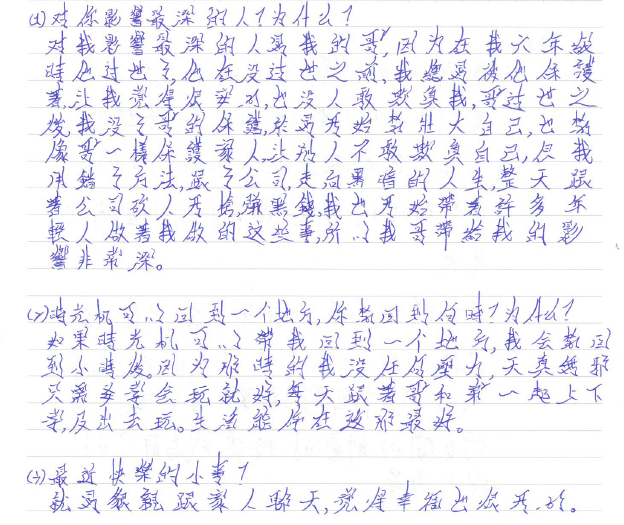 (1)对你影響最深的人?为什么?
对我影響最深的人是我的哥,因为在我六年級
時他过世了,他在没过世之前,我總是被他保護
著,让我觉得很安心,也没人敢欺負我,哥过世之
後,我没了哥的保護,於是开始想壯大自己,也想
像哥一樣保護家人,让别人不敢欺負自己,但我
用錯了方法,跟了公司,走向黑暗的人生,整天跟
著公司砍人开槍賺黑錢,我也开始帶著許多年
輕人做著我做的这些事,所以我哥帶給我的影
響非常深。
(2)時光机可以回到一个地方,你想回到何時?为什么?
如果時光机可以帶我回到一个地方,我会想回
到小時後。因为那時的我没任何壓力,天真無邪
只需要学会玩就好,每天跟著哥和弟一起上下
学,及出去玩。生活能停在这那最好。
(3)最近快樂的小事?
就是能跟家人聊天,觉得幸福也很开心。